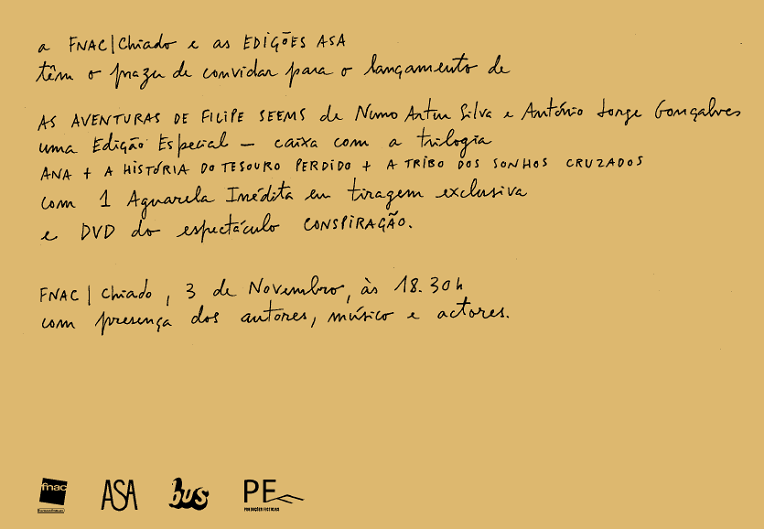 a FNAC|Chiado e as EDIÇÕES ASA
têm o prazer de convidar para o lançamento de
AS AVENTURAS DE FILIPE SEEMS de Nuno Artur Silva e António Jorge Gonçalves
uma Edição Especial – caixa com a trilogia
ANA + A HISTÓRIA DO TESOURO PERDIDO + A TRIBO DOS SONHOS CRUZADOS
com 1 Aguarela Inédita em tiragem exclusiva
e DVD do espectáculo CONSPIRAÇÃO.
FNAC | Chiado, 3 de Novembro, às 18.30h
com presença dos autores, músico e actores.
fnac ASA bus PF
PRODUÇÕES FICTÍCIAS